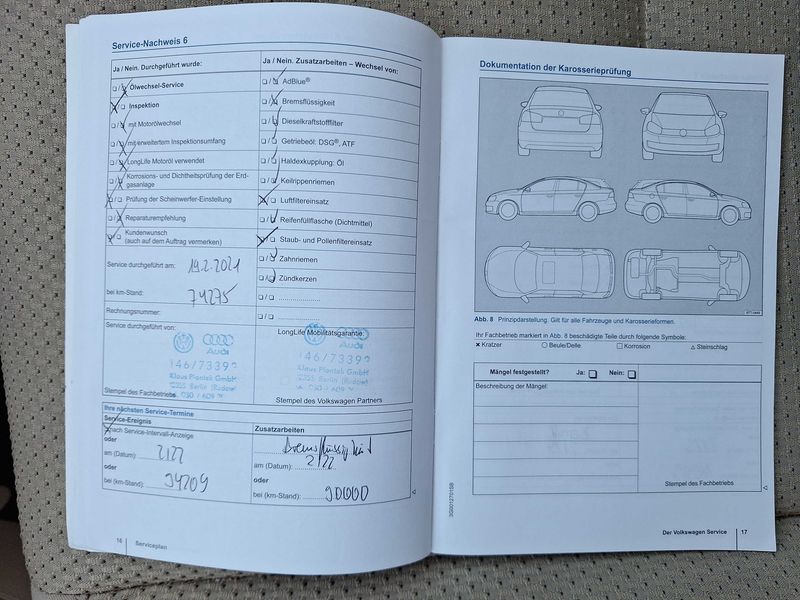 Service-Nachweis 6
Ja / Nein. Durchgeführt wurde:
Ölwechsel-Service
Inspektion
mit Motorölwechsel
mit erweitertem Inspektionsumfang
LongLife Motoröl verwendet
Korrosions- und Dichtheitsprüfung der Erd-
gasanlage
Prüfung der Scheinwerfer-Einstellung
Reparaturempfehlung
Kundenwunsch
(auch auf dem Auftrag vermerken)
Service durchgeführt am: 19.2.2021
bei km-Stand: 74275
Rechnungsnummer:
Service durchgeführt von:
Audi
146/7339
Klaus Plantek GmbH
Berlin (Rudow)
Stempel des Fachbetriebs
Ja / Nein. Zusatzarbeiten – Wechsel von:
AdBlue®
Bremsflüssigkeit
Dieselkraftstofffilter
Getriebeöl: DSG®, ATF
Haldexkupplung: Öl
Keilrippenriemen
Luftfiltereinsatz
Reifenfüllflasche (Dichtmittel)
Staub- und Pollenfiltereinsatz
Zahnriemen
Zündkerzen
LongLife Mobilitätsgarantie:
Audi
146/7339
Klaus Plantek GmbH
Berlin (Rudow)
Stempel des Volkswagen Partners
Ihre nächsten Service-Termine
Service-Ereignis
nach Service-Intervall-Anzeige
oder
am (Datum): 2/22
oder
bei (km-Stand): 94209
Zusatzarbeiten
Bremsflüssigkeit
am (Datum): 2/22
oder
bei (km-Stand): 90000
16 Serviceplan
Dokumentation der Karosserieprüfung
Abb. 8 Prinzipdarstellung. Gilt für alle Fahrzeuge und Karosserieformen.
Ihr Fachbetrieb markiert in Abb. 8 beschädigte Teile durch folgende Symbole:
× Kratzer ○ Beule/Delle □ Korrosion △ Steinschlag
Mängel festgestellt? Ja: Nein:
Beschreibung der Mängel:
Stempel des Fachbetriebs
3G0012701SB
Der Volkswagen Service 17